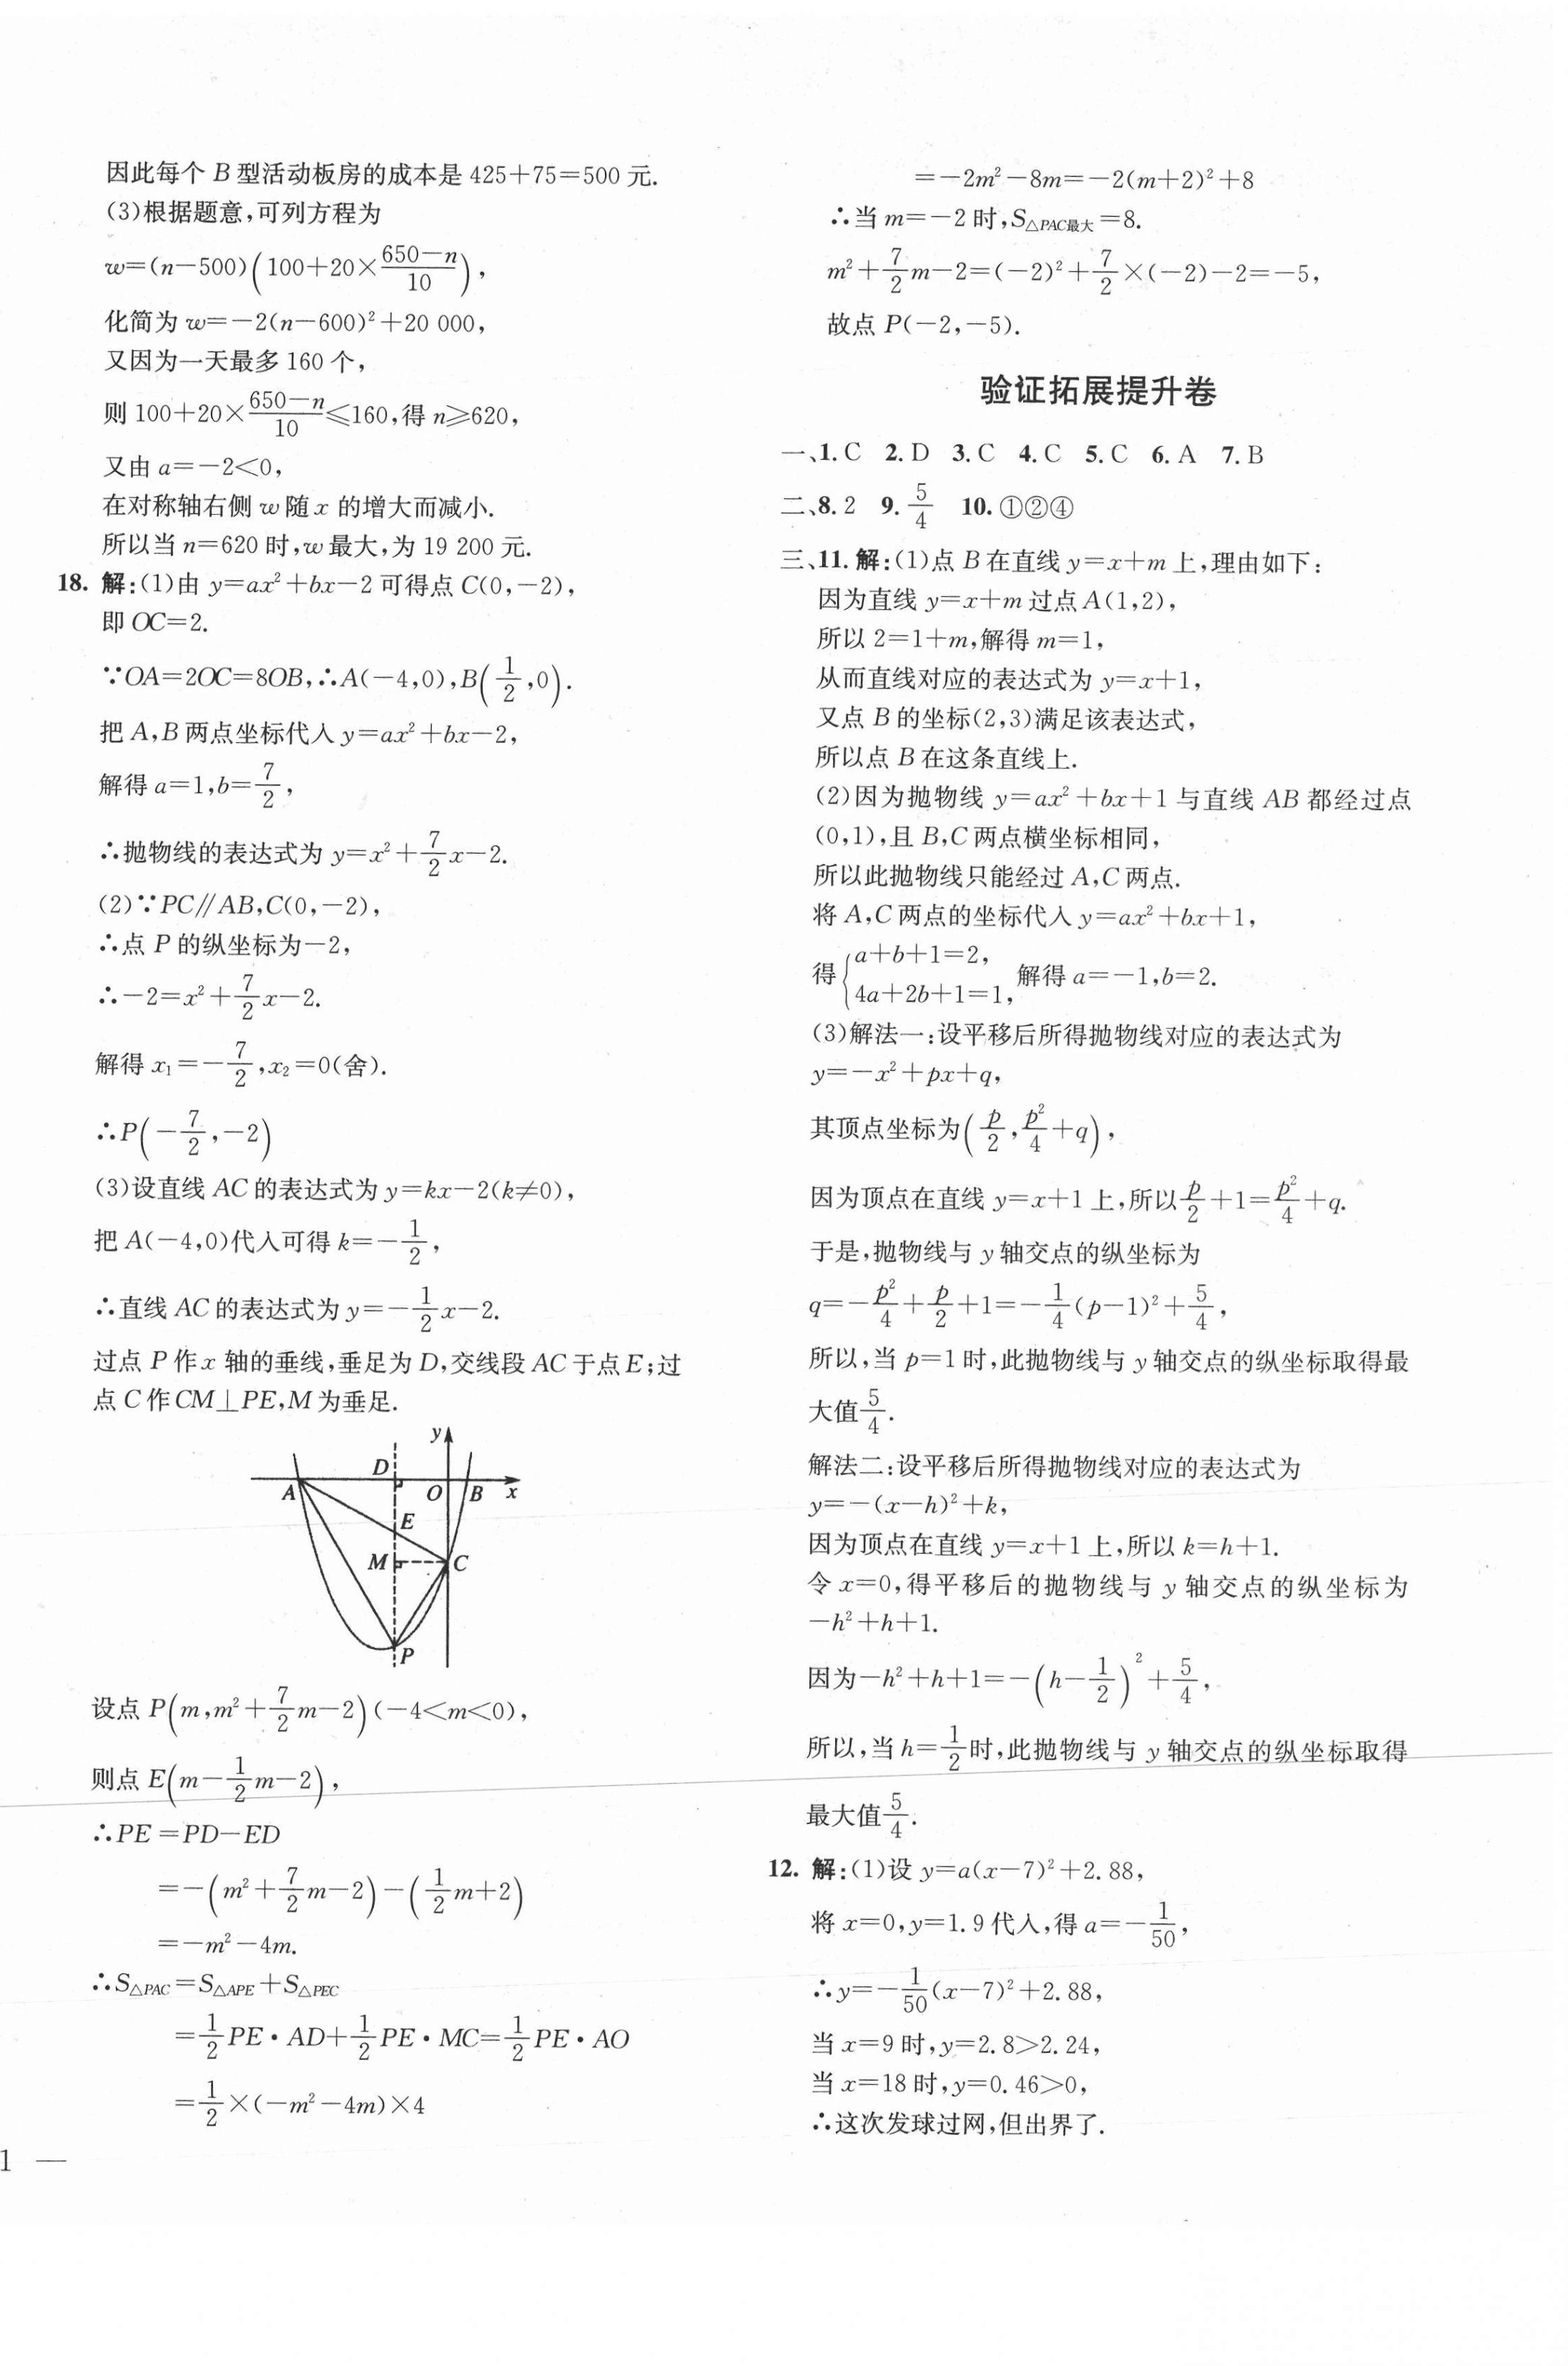 因此每个 B 型活动板房的成本是 425+75=500 元.
(3)根据题意,可列方程为
w=(n-500)(100+20×\frac{650-n}{10}),
化简为 w=-2(n-600)²+20 000,
又因为一天最多 160 个,
则 100+20×\frac{650-n}{10}≤160,得 n≥620,
又由 a=-2<0,
在对称轴右侧 w 随 x 的增大而减小.
所以当 n=620 时,w 最大,为 19 200 元.
18. 解:(1)由 y=ax²+bx-2 可得点 C(0,-2),
即 OC=2.
∵OA=2OC=8OB,∴A(-4,0),B(\frac{1}{2},0).
把 A,B 两点坐标代入 y=ax²+bx-2,
解得 a=1,b=\frac{7}{2},
∴抛物线的表达式为 y=x²+\frac{7}{2}x-2.
(2)∵PC∥AB,C(0,-2),
∴点 P 的纵坐标为-2,
∴-2=x²+\frac{7}{2}x-2.
解得 x₁=-\frac{7}{2},x₂=0(舍).
∴P(-\frac{7}{2},-2)
(3)设直线 AC 的表达式为 y=kx-2(k≠0),
把 A(-4,0)代入可得 k=-\frac{1}{2},
∴直线 AC 的表达式为 y=-\frac{1}{2}x-2.
过点 P 作 x 轴的垂线,垂足为 D,交线段 AC 于点 E;过
点 C 作 CM⊥PE,M 为垂足.
y
D
A O B x
E
M C
P
设点 P(m,m²+\frac{7}{2}m-2)(-4<m<0),
则点 E(m-\frac{1}{2}m-2),
∴PE=PD-ED
=-(m²+\frac{7}{2}m-2)-(\frac{1}{2}m+2)
=-m²-4m.
∴S△PAC=S△APE+S△PEC
=\frac{1}{2}PE·AD+\frac{1}{2}PE·MC=\frac{1}{2}PE·AO
=\frac{1}{2}×(-m²-4m)×4
1 —
=-2m²-8m=-2(m+2)²+8
∴当 m=-2 时,S△PAC最大=8.
m²+\frac{7}{2}m-2=(-2)²+\frac{7}{2}×(-2)-2=-5,
故点 P(-2,-5).
验证拓展提升卷
一、1. C 2. D 3. C 4. C 5. C 6. A 7. B
二、8. 2 9. \frac{5}{4} 10. ①②④
三、11. 解:(1)点 B 在直线 y=x+m 上,理由如下:
因为直线 y=x+m 过点 A(1,2),
所以 2=1+m,解得 m=1,
从而直线对应的表达式为 y=x+1,
又点 B 的坐标(2,3)满足该表达式,
所以点 B 在这条直线上.
(2)因为抛物线 y=ax²+bx+1 与直线 AB 都经过点
(0,1),且 B,C 两点横坐标相同,
所以此抛物线只能经过 A,C 两点.
将 A,C 两点的坐标代入 y=ax²+bx+1,
得{a+b+1=2, 4a+2b+1=1, 解得 a=-1,b=2.
(3)解法一:设平移后所得抛物线对应的表达式为
y=-x²+px+q,
其顶点坐标为(\frac{p}{2},\frac{p²}{4}+q),
因为顶点在直线 y=x+1 上,所以\frac{p}{2}+1=\frac{p²}{4}+q.
于是,抛物线与 y 轴交点的纵坐标为
q=-\frac{p²}{4}+\frac{p}{2}+1=-\frac{1}{4}(p-1)²+\frac{5}{4},
所以,当 p=1 时,此抛物线与 y 轴交点的纵坐标取得最
大值\frac{5}{4}.
解法二:设平移后所得抛物线对应的表达式为
y=-(x-h)²+k,
因为顶点在直线 y=x+1 上,所以 k=h+1.
令 x=0,得平移后的抛物线与 y 轴交点的纵坐标为
-h²+h+1.
因为-h²+h+1=-(h-\frac{1}{2})²+\frac{5}{4},
所以,当 h=\frac{1}{2}时,此抛物线与 y 轴交点的纵坐标取得
最大值\frac{5}{4}.
12. 解:(1)设 y=a(x-7)²+2.88,
将 x=0,y=1.9 代入,得 a=-\frac{1}{50},
∴y=-\frac{1}{50}(x-7)²+2.88,
当 x=9 时,y=2.8>2.24,
当 x=18 时,y=0.46>0,
∴这次发球过网,但出界了.